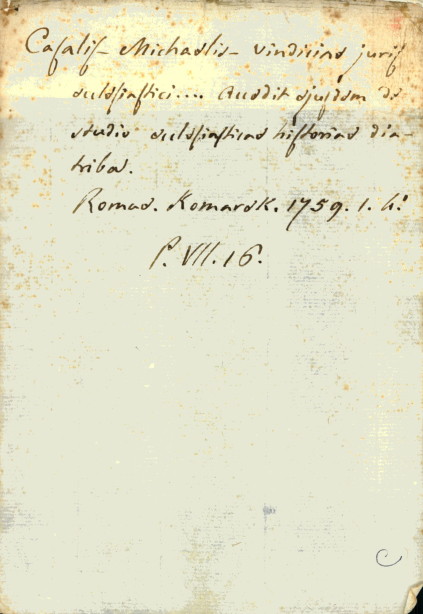 Casalis Michaelis vindiciae juris
ecclesiastici.... Accedit ejusdem de
studio ecclesiasticae historiae dia-
tribae.
Romae. Komarek. 1759. 1. h.
P. VII. 16.